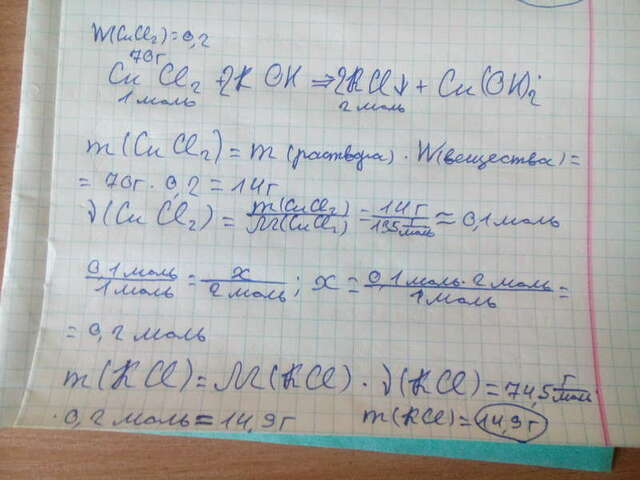 W(CuCl₂)=0,2
70г
CuCl₂ + 2KOH ⇒ 2KCl + Cu(OH)₂
1 моль 2 моль
m(CuCl₂) = m(раствора) · W(вещества) =
= 70г · 0,2 = 14г
ν(CuCl₂) = m(CuCl₂)/M(CuCl₂) = 14г/135 г/моль ≈ 0,1 моль
0,1 моль/1 моль = x/2 моль; x = 0,1 моль · 2 моль/1 моль =
= 0,2 моль
m(KCl) = M(KCl) · ν(KCl) = 74,5 г/моль ·
· 0,2 моль = 14,9г m(KCl) = 14,9г